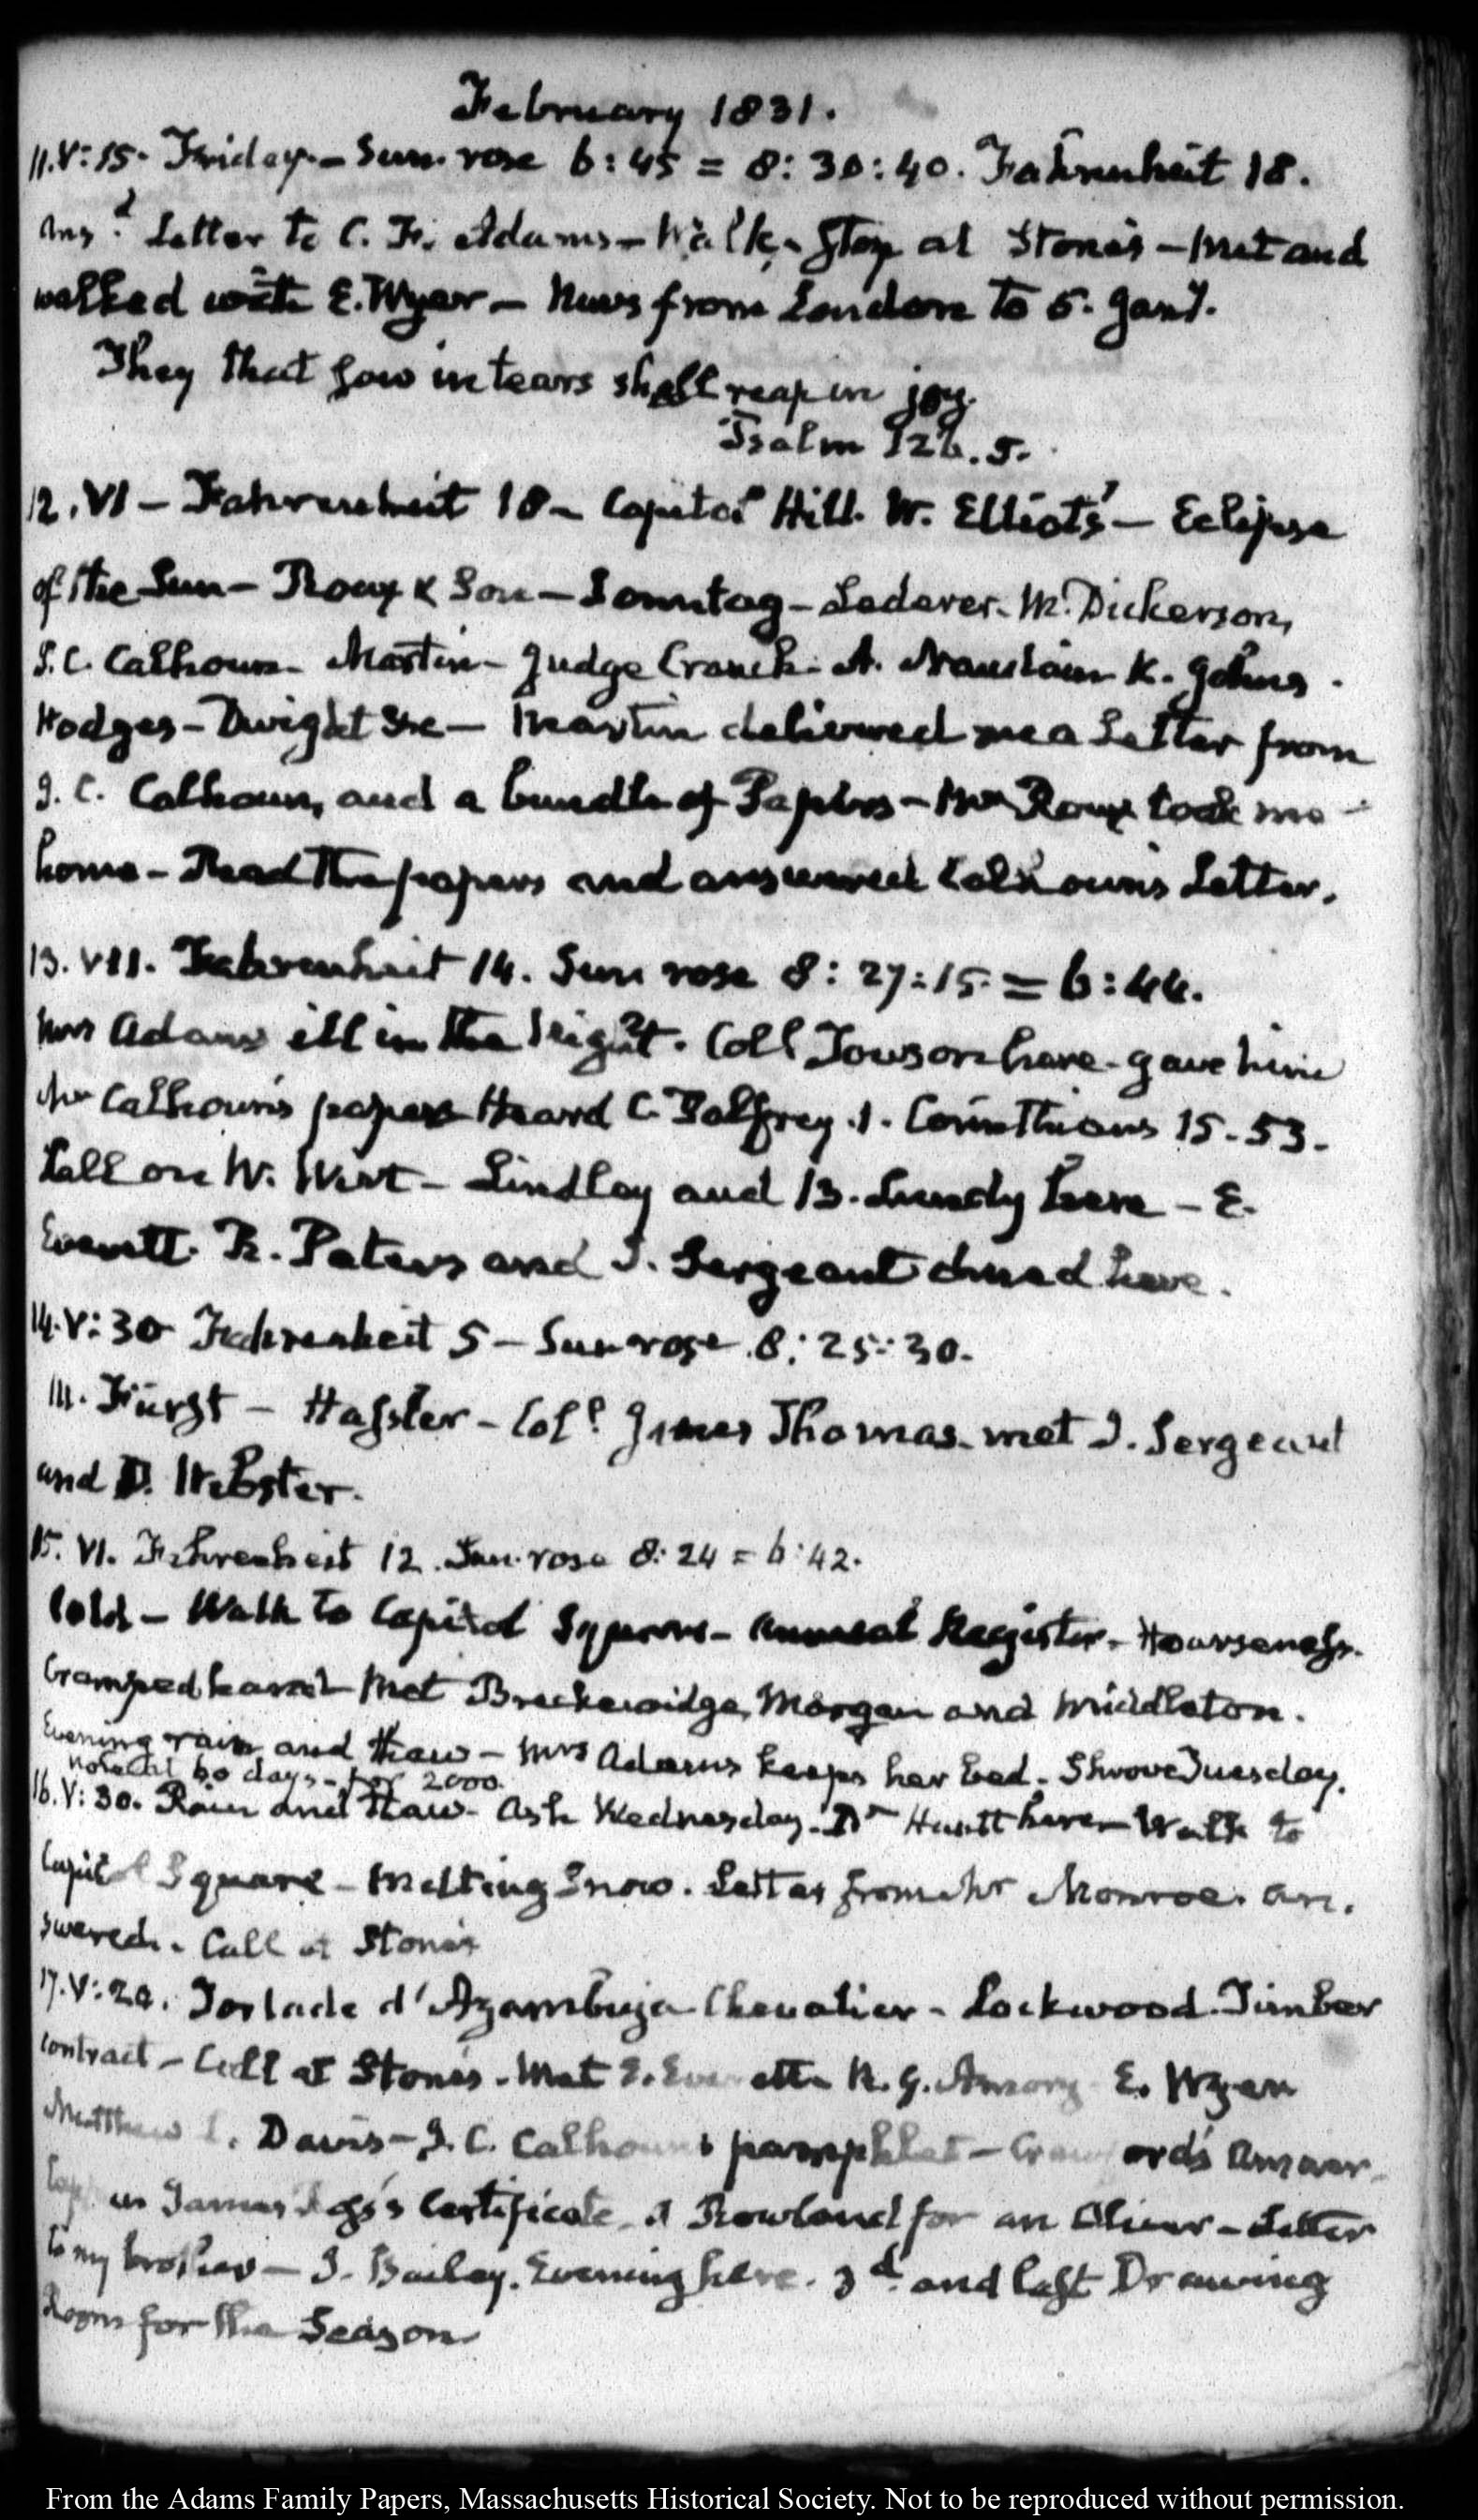 February 1831.
11. V:15. Friday. – Sun. rose 6:45 = 8:30:40. Fahrenheit 18.
Ansd. Letter to C. F. Adams – Walk – Stop at Stone's – Met and
walked with E. Wyer – News from London to 5. Jany.
They that sow in tears shall reap in joy.
Psalm 126. 5.
12. VI – Fahrenheit 18 – Capitol Hill. W. Elliot's – Eclipse
of the Sun – Roux & Son – Sonntag – Lederer. M. Dickerson,
J. C. Calhoun. Martin – Judge Cranch. A. K. Johns.
Hodges – Dwight &c – Martin delivered me a Letter from
J. C. Calhoun, and a bundle of Papers – Mr Roux took me
home – Read the papers and answered Calhoun's Letter.
13. VII. Fahrenheit 14. Sun rose 8:27:15. = 6:44.
Mrs Adams ill in the Night. Coll Towson here – gave him
Mr Calhoun's papers Heard C. Palfrey. 1. Corinthians 15. 53.
Call on W. Wirt – Lindley and B. Lundy here – E.
Everett. R. Peters and J. Sergeant dined here.
14. V:30 Fahrenheit 5 – Sun rose 8:25:30.
M. Fürst – Hassler – Coll. James Thomas. met J. Sergeant
and D. Webster.
15. VI. Fahrenheit 12. Sun. rose 8:24 = 6:42.
Cold – Walk to Capitol Square – Annual Register – Hoarseness.
Cramped hand Met Breckenridge, Morgan and Middleton.
Evening rain and thaw – Mrs Adams keeps her bed. Shrove Tuesday.
Note at 60 days – for 2000.
16. V:30. Rain and thaw – Ash Wednesday. Dr Huntt here – Walk to
Capitol Square – Melting Snow. Letter from Mr Monroe. an.
swered. Call at Stone's
17. V:20. Torlade d'Azambuja Chevalier – Lockwood. Timber
contract – Call at Stone's. Met E. Everett R. G. Amory E. Wyer
Matthew L. Davis – J. C. Calhoun's pamphlet – Crawford's answer.
James Certificate. Rowland for an – Letter
to my brother – J. Bailey. Evening here. 3d. and last Drawing
Room for the Season
From the Adams Family Papers, Massachusetts Historical Society. Not to be reproduced without permission.